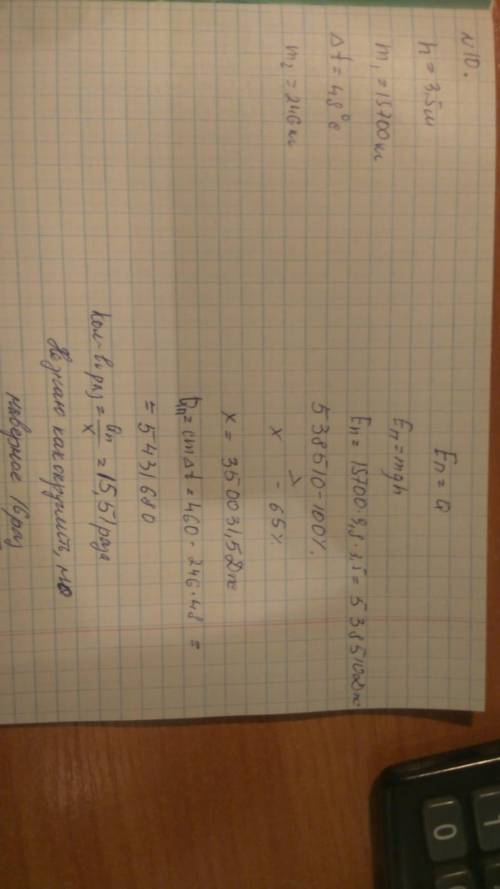 №10.
h = 3,5м
m₁ = 15700кг
Δt = 48°C
m₂ = 246кг
Eп = Q
Eп = mgh
Eп = 15700·9,8·3,5 = 538510Дж
538510 - 100%
x - 65%
x = 350031,5Дж
Qп = cmΔt = 460·246·48 =
= 5431680
кол-во раз = Qп/x = 15,51 раза
Не знаю как округлить, но
наверное 16 раз
0
1